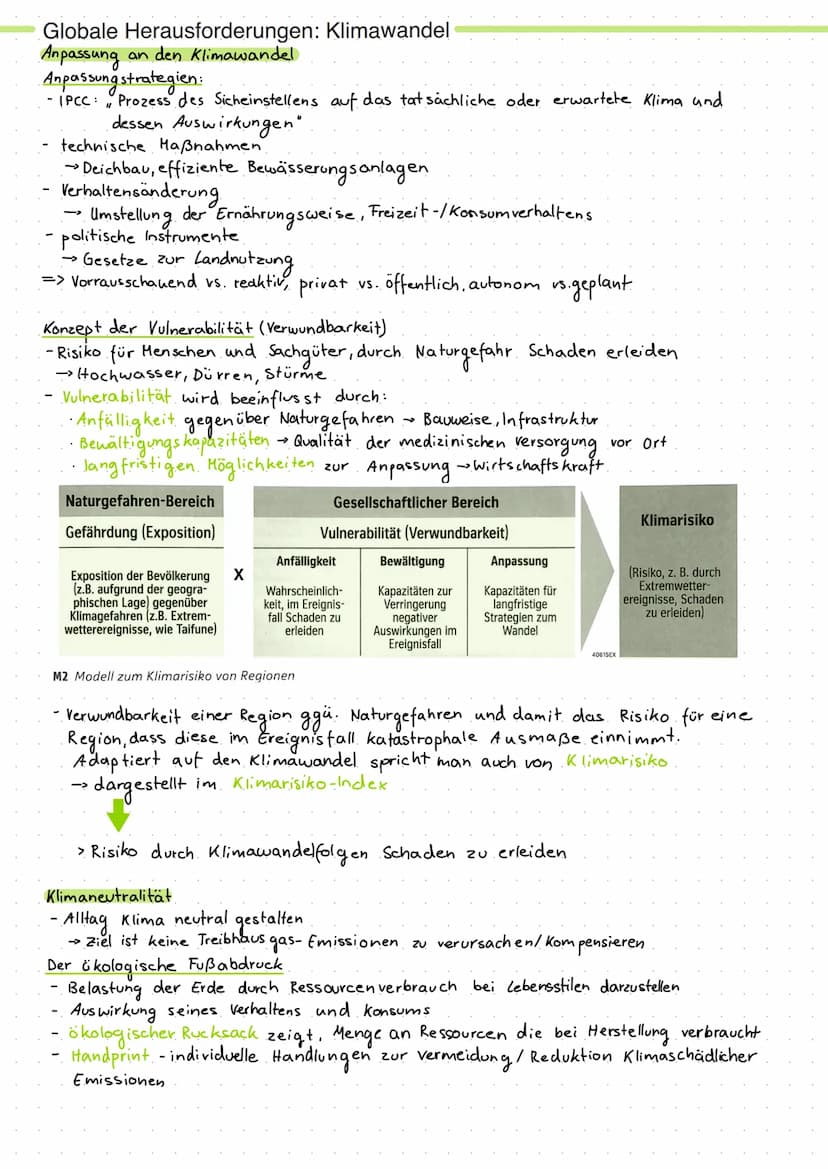 Globale Herausforderungen: Klimawandel
Anpassung an den Klimawandel
Anpassungstrategien:
- IPCC: „Prozess des Sicheinstellens auf das tatsächliche oder erwartete Klima und
dessen Auswirkungen"
- technische Maßnahmen
→ Deichbau, effiziente Bewässerungsanlagen
- Verhaltensänderung
→ Umstellung der Ernährungsweise, Freizeit-/Konsumverhaltens
- politische Instrumente
→ Gesetze zur Landnutzung
=> Vorrausschauend vs. reaktiv, privat vs. öffentlich, autonom vs. geplant
Konzept der Vulnerabilität (Verwundbarkeit)
- Risiko für Menschen und Sachgüter, durch Naturgefahr Schaden erleiden
→ Hochwasser, Dürren, Stürme
- Vulnerabilität wird beeinflusst durch:
· Anfälligkeit gegenüber Naturgefahren → Bauweise, Infrastruktur
· Bewältigungskapazitäten → Qualität der medizinischen Versorgung vor Ort
· langfristigen Möglichkeiten zur Anpassung → Wirtschaftskraft
Naturgefahren-Bereich
Gefährdung (Exposition)
Exposition der Bevölkerung
(z.B. aufgrund der geogra-
phischen Lage) gegenüber
Klimagefahren (z.B. Extrem-
wetterereignisse, wie Taifune)
X
Gesellschaftlicher Bereich
Vulnerabilität (Verwundbarkeit)
Anfälligkeit
Wahrscheinlich-
keit, im Ereignis-
fall Schaden zu
erleiden
Bewältigung
Kapazitäten zur
Verringerung
negativer
Auswirkungen im
Ereignisfall
Anpassung
Kapazitäten für
langfristige
Strategien zum
Wandel
Klimarisiko
(Risiko, z. B. durch
Extremwetter-
ereignisse, Schaden
zu erleiden)
40615EX
M2 Modell zum Klimarisiko von Regionen
- Verwundbarkeit einer Region ggü. Naturgefahren und damit das Risiko für eine
Region, dass diese im Ereignisfall katastrophale Ausmaße einnimmt.
Adaptiert auf den Klimawandel spricht man auch von Klimarisiko
→ dargestellt im Klimarisiko-Index
> Risiko durch Klimawandelfolgen Schaden zu erleiden
Klimaneutralität
- Alltag Klima neutral gestalten
→ Ziel ist keine Treibhausgas-Emissionen zu verursachen/kompensieren
Der ökologische Fußabdruck
- Belastung der Erde durch Ressourcenverbrauch bei Lebensstilen darzustellen
- Auswirkung seines Verhaltens und Konsums
- ökologischer Rucksack zeigt, Menge an Ressourcen die bei Herstellung verbraucht
- Handprint - individuelle Handlungen zur Vermeidung/Reduktion Klimaschädlicher
Emissionen